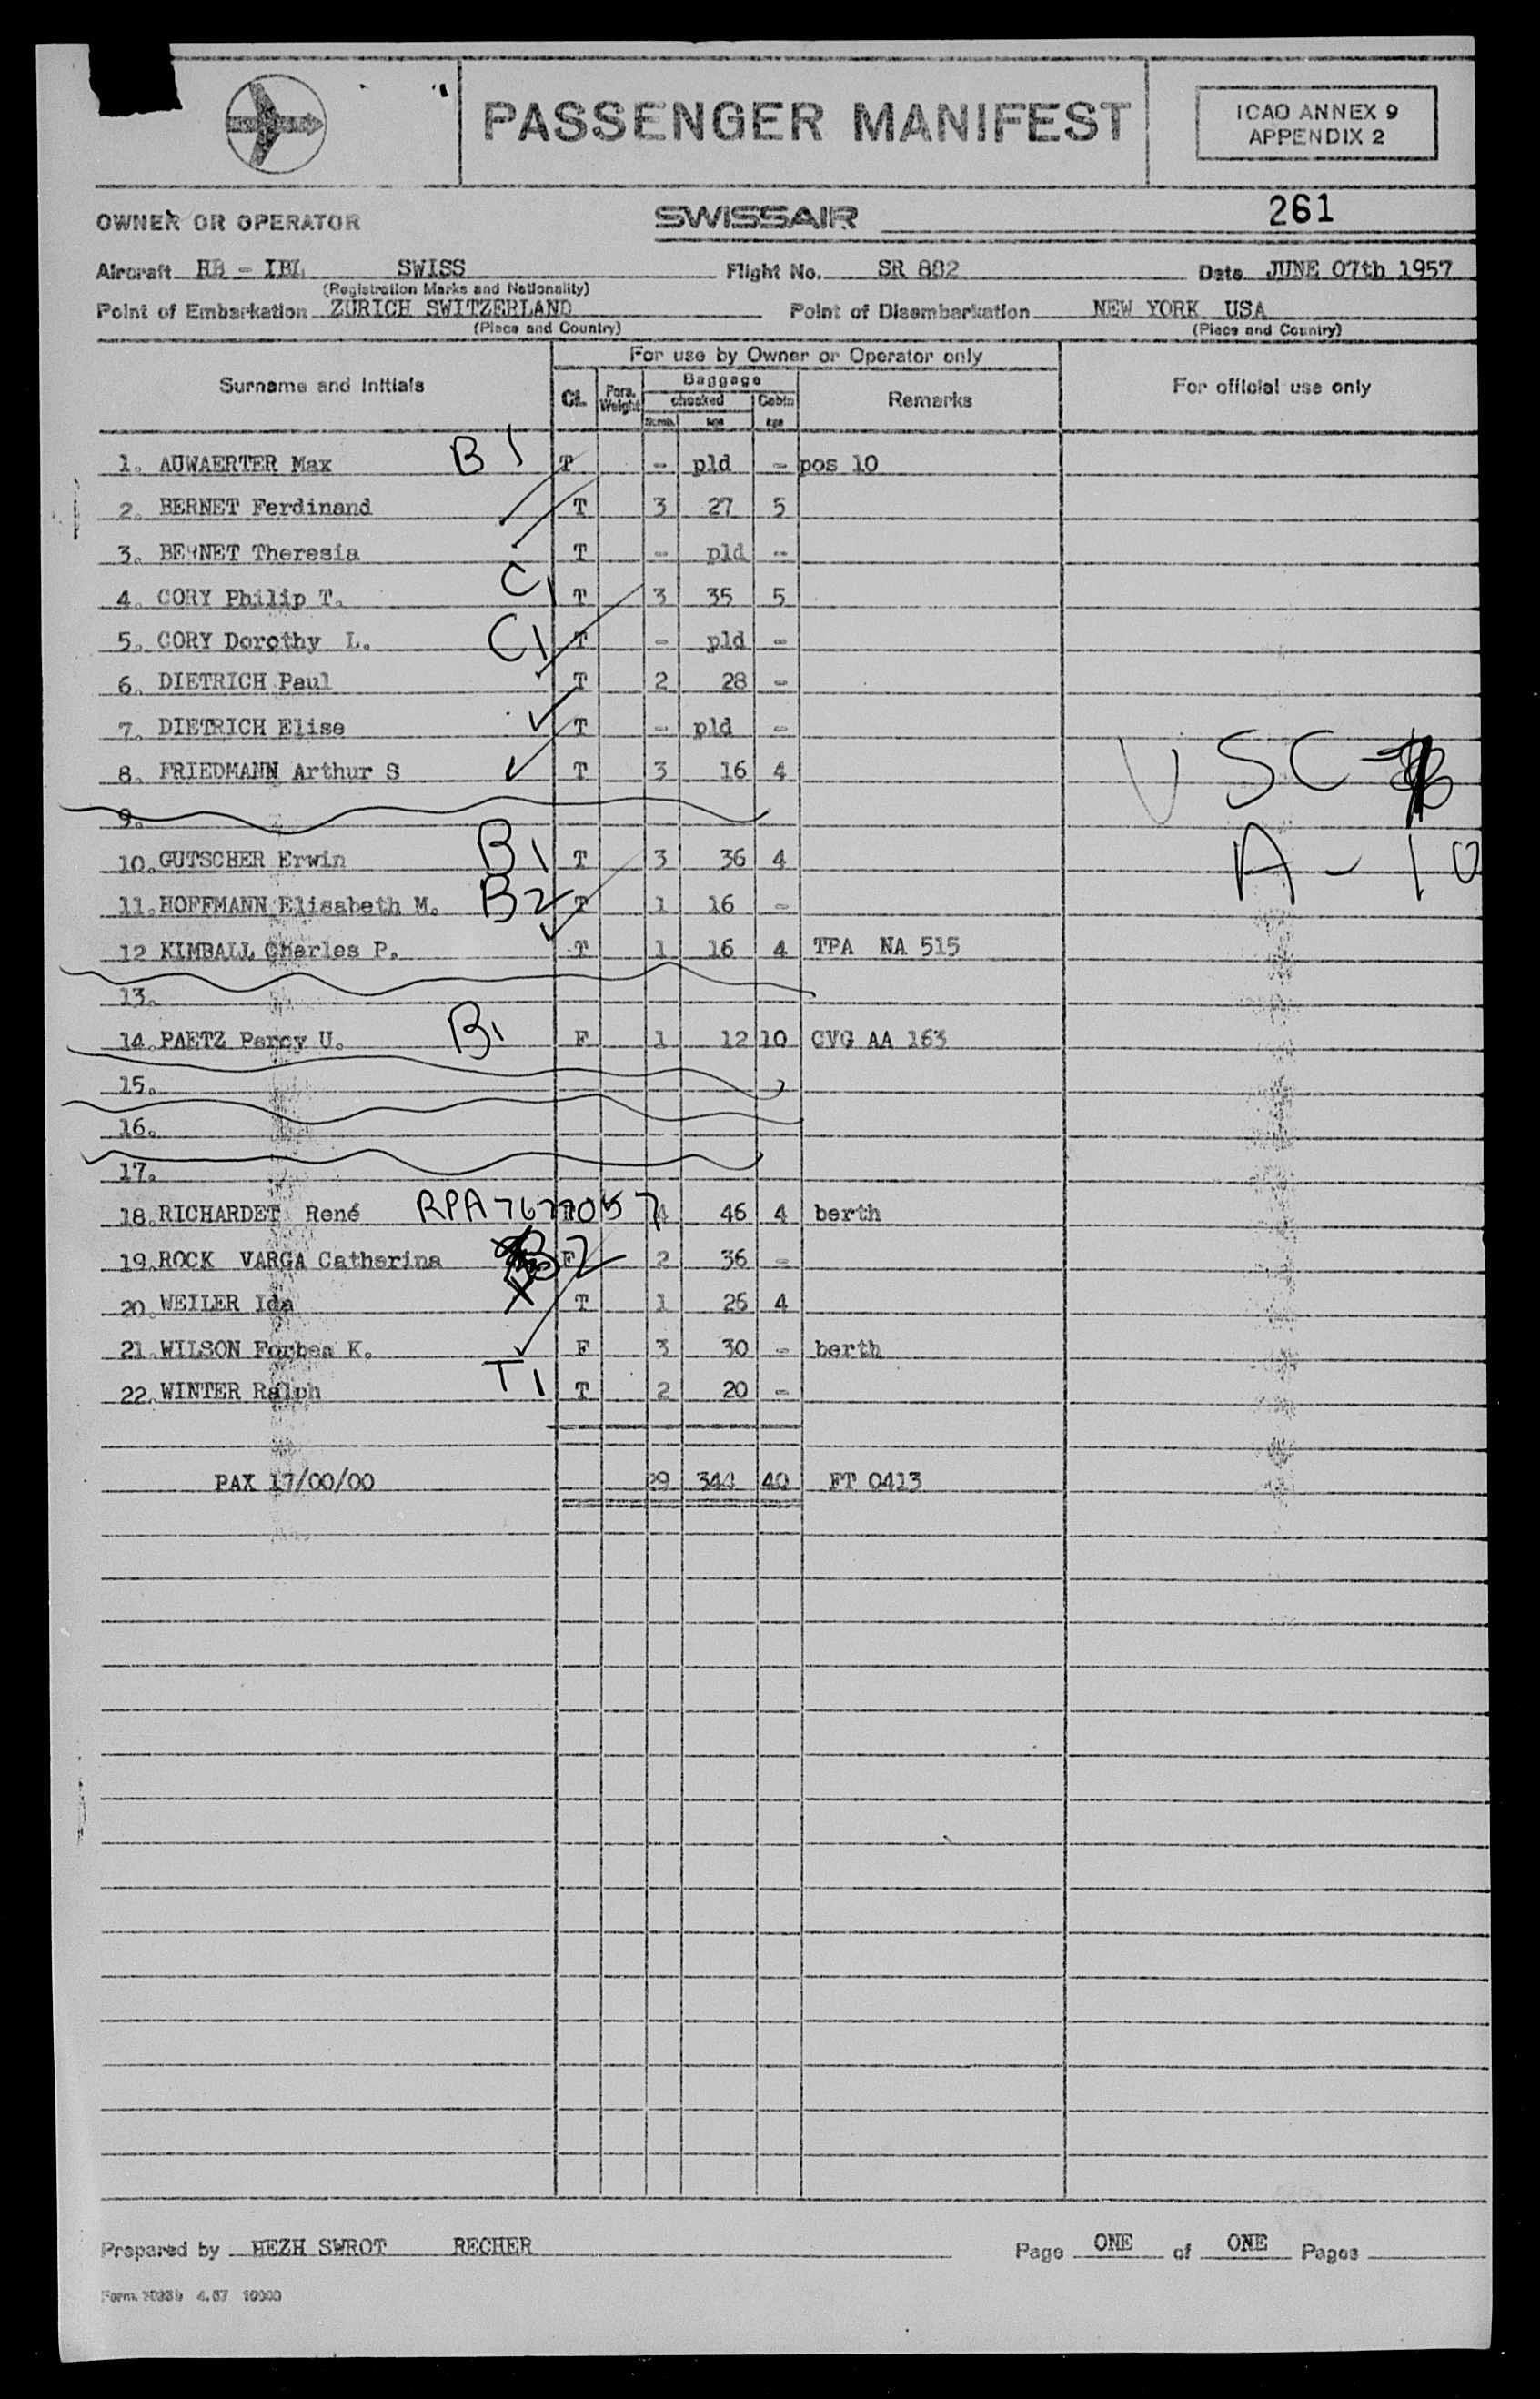 PASSENGER MANIFEST
ICAO ANNEX 9
APPENDIX 2
261
OWNER OR OPERATOR SWISSAIR
Aircraft HB - IBL SWISS Flight No. SR 882 Date JUNE 07th 1957
(Registration Marks and Nationality)
Point of Embarkation ZURICH SWITZERLAND Point of Disembarkation NEW YORK USA
(Place and Country) (Place and Country)
For use by Owner or Operator only
Surname and Initials Cl. Pers. Weight Baggage Remarks For official use only
checked Cabin
Numb. kgs kgs
1. AUWAERTER Max B1 T - pld - pos 10
2. BERNET Ferdinand T 3 27 5
3. BERNET Theresia T - pld -
4. CORY Philip T. C1 T 3 35 5
5. CORY Dorothy L. C1 T - pld -
6. DIETRICH Paul T 2 28 -
7. DIETRICH Elise T - pld -
8. FRIEDMANN Arthur S T 3 16 4
USC-
9.
A-10
10. GUTSCHER Erwin B1 T 3 36 4
11. HOFFMANN Elisabeth M. B2 T 1 16 -
12 KIMBALL Charles P. T 1 16 4 TPA NA 515
13.
14. PAETZ Percy U. B1 F 1 12 10 CVG AA 163
15.
16.
17.
18. RICHARDET René RPA 4 46 4 berth
19. ROCK VARGA Catherina B2 F 2 36 -
20. WEILER Ida T 1 26 4
21. WILSON Forbes K. F 3 30 - berth
22. WINTER Ralph T1 T 2 20 -
PAX 17/00/00 29 344 40 FT 0413
Prepared by HEZH SWROT RECHER Page ONE of ONE Pages
Form. 4.57 10000